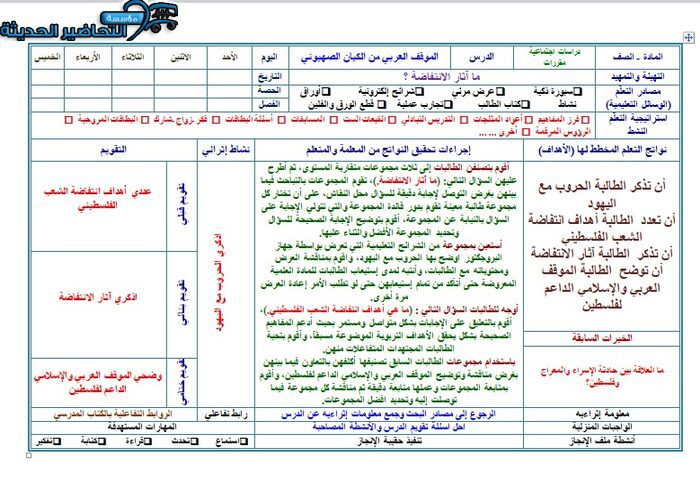 مؤسسة
التحاضير الحديثة
المادة - الصف
دراسات اجتماعية
مقررات
الدرس
الموقف العربي من الكيان الصهيوني
اليوم
الأحد
الاثنين
الثلاثاء
الأربعاء
الخميس
التهيئة والتمهيد
ما آثار الانتفاضة ؟
التاريخ
مصادر التعلم
(الوسائل التعليمية)
سبورة ذكية
عرض مرئي
شرائح إلكترونية
أوراق
الحصة
نشاط
كتاب الطالب
تجارب عملية
قطع الورق والفلين
الفصل
استراتيجية التعلم
النشط
فرز المفاهيم
أعواد المثلجات
التدريس التبادلي
القبعات الست
المسابقات
أسئلة البطاقات
فكر-زاوج-شارك
البطاقات المروحية
الرؤوس المرقمة
أخرى .... ...
نواتج التعلم المخطط لها (الأهداف)
إجراءات تحقيق النواتج من المعلمة والمتعلم
نشاط إثرائي
التقويم
أن تذكر الطالبة الحروب مع
اليهود
أن تعدد الطالبة أهداف انتفاضة
الشعب الفلسطيني
أن تذكر الطالبة آثار الانتفاضة
أن توضح الطالبة الموقف
العربي والإسلامي الداعم
لفلسطين
الخبرات السابقة
ما العلاقة بين حادثة الإسراء والمعراج
وفلسطين؟
أقوم بتصنفن الطالبات إلى ثلاث مجموعات متقاربة المستوى، ثم أطرح
عليهن السؤال التالي: (ما آثار الانتفاضة)، تقوم المجموعات بالتباحث فيما
بينهن بغرض التوصل لإجابة دقيقة للسؤال محل النقاش، على أن تختار كل
مجموعة طالبة معينة تقوم بدور قائدة المجموعة والتي تتولي الإجابة على
السؤال بالنيابة عن المجموعة، أقوم بتوضيح الإجابة الصحيحة للسؤال
وتحديد المجموعة الأفضل والثناء عليها.
أستعين بمجموعة من الشرائح التعليمية التي تعرض بواسطة جهاز
البروجكتور اوضح بها الحروب مع اليهود، وأقوم بمناقشة العرض
ومحتوياته مع الطالبات، وأنتبه لمدى إستيعاب الطالبات للمادة العلمية
المعروضة حتى أتأكد من تمام إستيعابهن حتى لو تطلب الأمر إعادة العرض
مرة أخرى.
أوجه للطالبات السؤال التالي : (ما هي أهداف انتفاضة الشعب الفلسطيني)،
أقوم بالتعليق على الإجابات بشكل متواصل ومستمر بحيث أدعم المفاهيم
الصحيحة بشكل يحقق الأهداف التربوية الموضوعة مسبقاً، وأقوم بتحية
الطالبات المجتهدات المتفاعلات منهن.
باستخدام مجموعات الطالبات السابق تصنيفها أكلفهن بالتعاون فيما بينهن
بغرض مناقشة وتوضيح الموقف العربي والإسلامي الداعم لفلسطين، وأقوم
بمتابعة المجموعات وعملها متابعة دقيقة ثم مناقشة كل مجموعة فيما
توصلت إليه وتحديد افضل المجموعات.
اذكري الحروب مع اليهود
تقويم قبلي
عددي أهداف انتفاضة الشعب
الفلسطيني
تقويم بنائي
اذكري آثار الانتفاضة
تقويم ختامي
وضحي الموقف العربي والإسلامي
الداعم لفلسطين
معلومة إثراءيه
الرجوع إلى مصادر البحث وجمع معلومات إثراءيه عن الدرس
رابط تفاعلي
الروابط التفاعلية بالكتاب المدرسي
الواجبات المنزلية
احل اسئلة تقويم الدرس والأنشطة المصاحبة
المهارات المستهدفة
أنشطة ملف الإنجاز
تنفيذ حقيبة الإنجاز
استماع
تحدث
قراءة
كتابة
تفكير